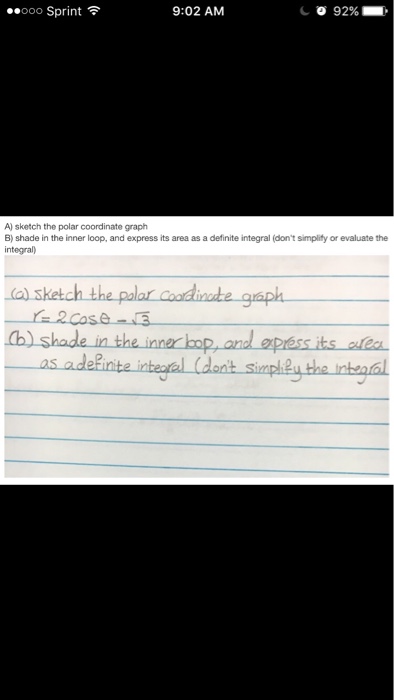 Sprint 9:02 AM 92%
A) sketch the polar coordinate graph
B) shade in the inner loop, and express its area as a definite integral (don't simplify or evaluate the
integral)
(a) sketch the polar coordinate graph
r = 2 cosθ - √3
(b) shade in the inner loop, and express its area
as a definite integral (don't simplify the integral